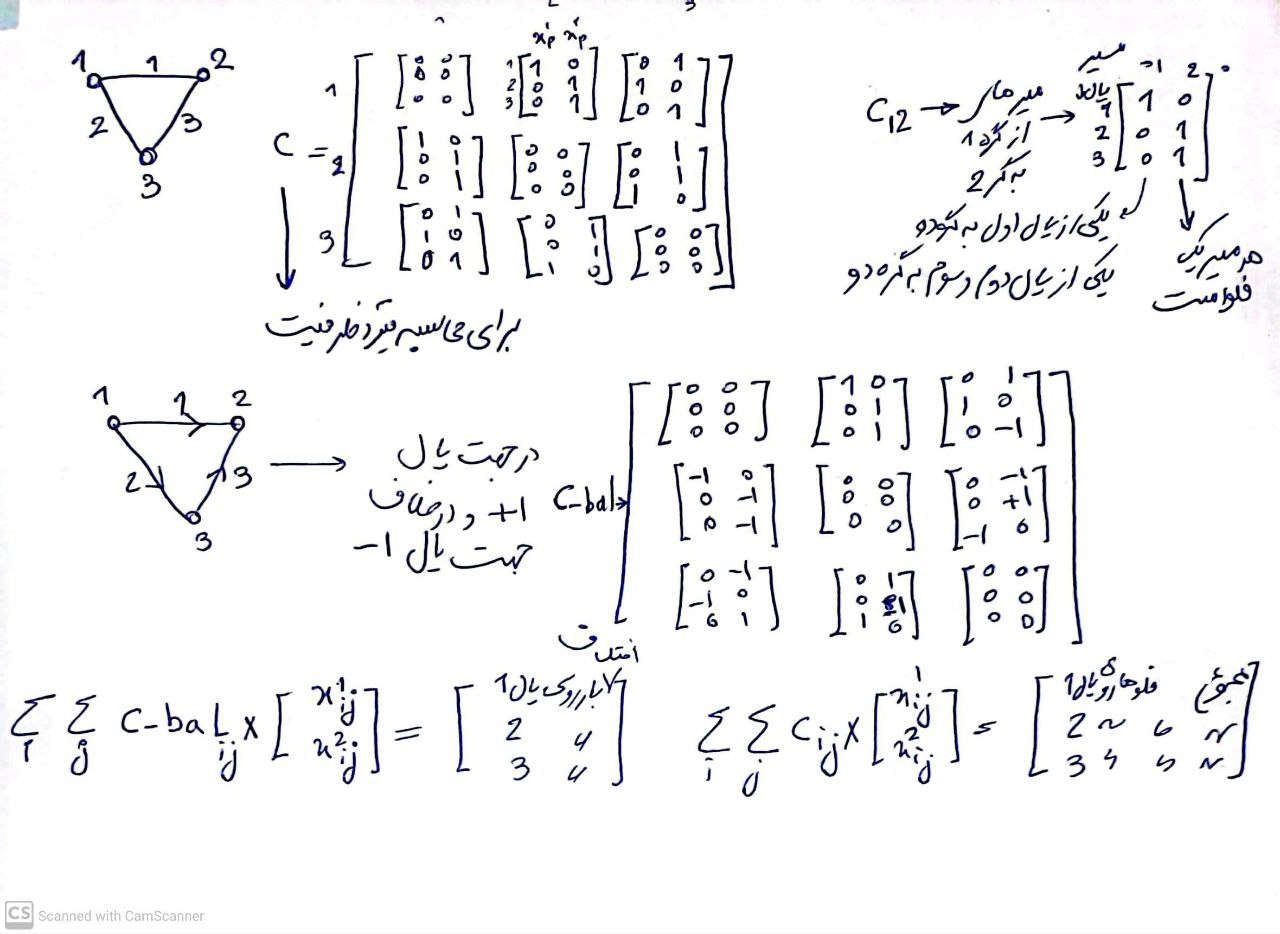 1 1 2
2 3
3
C =
1 [0 0; 0 0; 0 0] 1 2 3 [1 0; 0 1; 0 1] [0 1; 1 0; 0 1]
2 [1 0; 0 1; 0 1] [0 0; 0 0; 0 0] [0 1; 0 1; 1 0]
3 [0 1; 1 0; 0 1] [0 1; 0 1; 1 0] [0 0; 0 0; 0 0]
برای محاسبه قید ظرفیت
C12 → مسیرهای از گره 1 به گره 2 →
مسیر 1 2
یال
1 [1 0
2 0 1
3 0 1]
یکی از یال اول به گره دو
یکی از یال دوم و سوم به گره دو
هر مسیر یک
فلو است
1 1 2
2 3
3
در جهت یال
+1 و در خلاف
جهت یال -1
C-bal
[0 0; 0 0; 0 0] [1 0; 0 1; 0 1] [0 1; 1 0; 0 -1]
[-1 0; 0 -1; 0 -1] [0 0; 0 0; 0 0] [0 -1; 0 +1; -1 0]
[0 -1; -1 0; 0 1] [0 1; 0 -1; 1 0] [0 0; 0 0; 0 0]
اختلاف
Σi Σj C-bal ij × [x¹ij; x²ij] = [بار روی یال 1; 2 〃; 3 〃]
Σi Σj Cij × [x¹ij; x²ij] = [مجموع فلوها رو یال 1; 2 〃 〃 〃; 3 〃 〃 〃]
CS Scanned with CamScanner